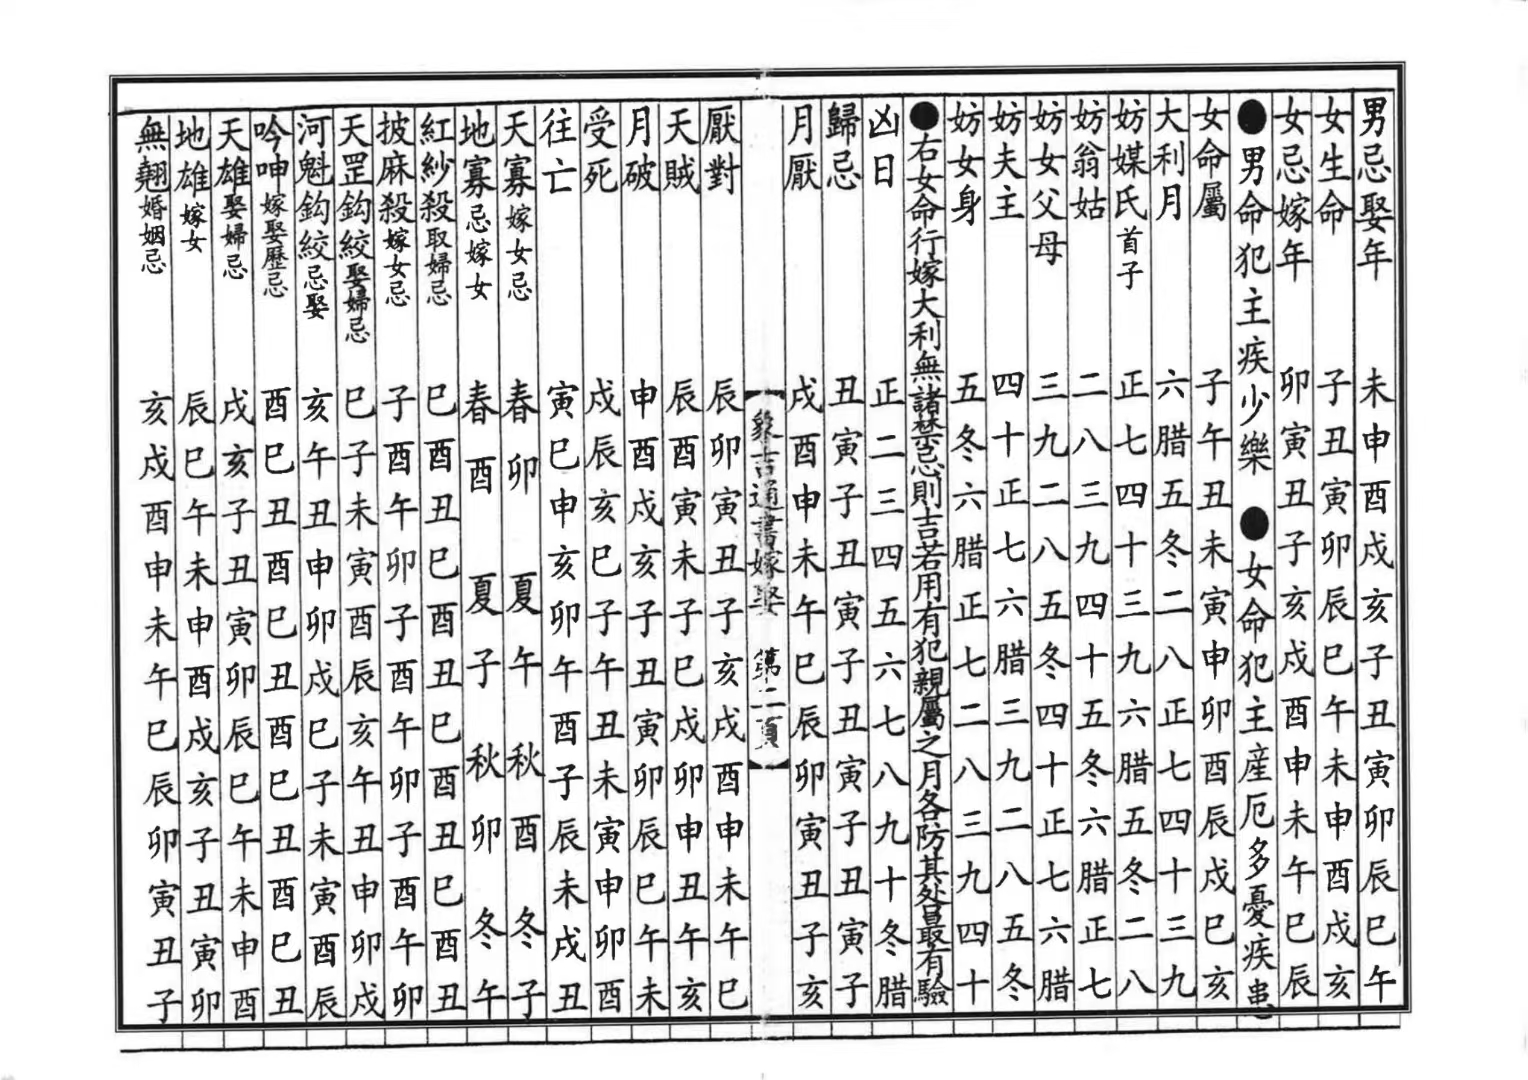 男忌娶年 未申酉戌亥子丑寅卯辰巳午
女生命 子丑寅卯辰巳午未申酉戌亥
女忌嫁年 卯寅丑子亥戌酉申未午巳辰
●男命犯主疾少樂 ●女命犯主産厄多憂疾患
女命屬 子午丑未寅申卯酉辰戌巳亥
大利月 六腊五冬二八正七四十三九
妨媒氏首子 正七四十三九六腊五冬二八
妨翁姑 二八三九四十五冬六腊正七
妨女父母 三九二八五冬四十正七六腊
妨夫主 四十正七六腊三九二八五冬
妨女身 五冬六腊正七二八三九四十
●右女命行嫁大利無諸禁忌則吉若用有犯親屬之月各防其咎最有驗
凶日 正二三四五六七八九十冬腊
歸忌 丑寅子丑寅子丑寅子丑寅子
月厭 戌酉申未午巳辰卯寅丑子亥
【象吉通書嫁娶 第二頁】
厭對 辰卯寅丑子亥戌酉申未午巳
天賊 辰酉寅未子巳戌卯申丑午亥
月破 申酉戌亥子丑寅卯辰巳午未
受死 戌辰亥巳子午丑未寅申卯酉
往亡 寅巳申亥卯午酉子辰未戌丑
天寡嫁女忌 春卯 夏午 秋酉 冬子
地寡忌嫁女 春酉 夏子 秋卯 冬午
紅紗殺取婦忌 巳酉丑巳酉丑巳酉丑巳酉丑
披麻殺嫁女忌 子酉午卯子酉午卯子酉午卯
天罡鈎絞娶婦忌 巳子未寅酉辰亥午丑申卯戌
河魁鈎絞忌娶 亥午丑申卯戌巳子未寅酉辰
吟呻嫁娶歷忌 酉巳丑酉巳丑酉巳丑酉巳丑
天雄娶婦忌 戌亥子丑寅卯辰巳午未申酉
地雄嫁女 辰巳午未申酉戌亥子丑寅卯
無翹婚姻忌 亥戌酉申未午巳辰卯寅丑子